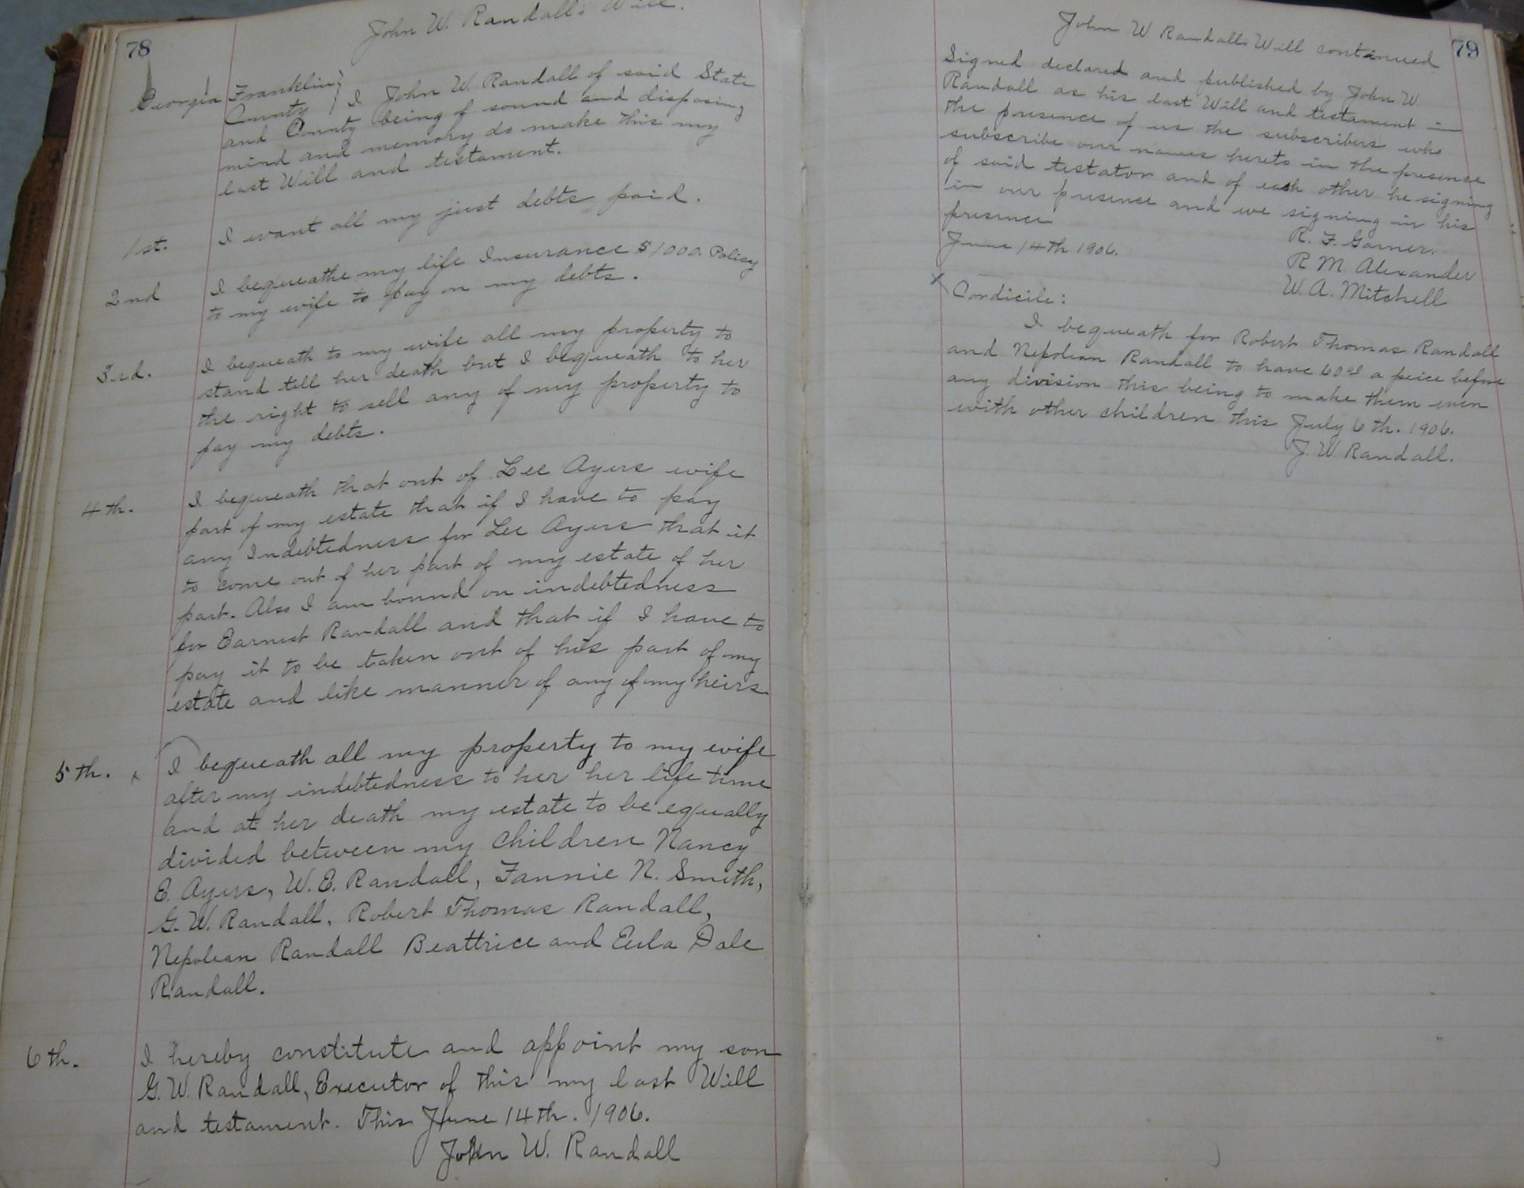 78
John W. Randall's Will.
Georgia Franklin
County I John W. Randall of said State
and County being of sound and disposing
mind and memory do make this my
last Will and testament.
1st. I want all my just debts paid.
2nd I bequeathe my life Insurance $1000. Policy
to my wife to pay on my debts.
3rd. I bequeath to my wife all my property to
stand till her death but I bequeath to her
the right to sell any of my property to
pay my debts.
4th. I bequeath that out of Lee Ayers wife
part of my estate that if I have to pay
any Indebtedness for Lee Ayers that it
to come out of her part of my estate of her
part. Also I am bound on indebtedness
for Earnest Randall and that if I have to
pay it to be taken out of his part of my
estate and like manner of any of my heirs
5th. x I bequeath all my property to my wife
after my indebtedness to her her life time
and at her death my estate to be equally
divided between my Children Nancy
E. Ayers, W. E. Randall, Fannie N. Smith,
G. W. Randall, Robert Thomas Randall,
Nepolean Randall Beattrice and Eula Dale
Randall.
6th. I hereby constitute and appoint my son
G. W. Randall, Executor of this my last Will
and testament. This June 14th. 1906.
John W. Randall
79
John W Randalls Will continued
Signed declared and published by John W
Randall as his last Will and testament in
the presence of us the subscribers who
subscribe our names hereto in the presence
of said testator and of each other he signing
in our presence and we signing in his
presence
R. F. Garner.
June 14th 1906.
R M Alexander
W. A. Mitchell
x Cordicile:
I bequeath for Robert Thomas Randall
and Nepolean Randall to have a peice before
any division this being to make them even
with other children this July 6th. 1906.
J. W Randall.